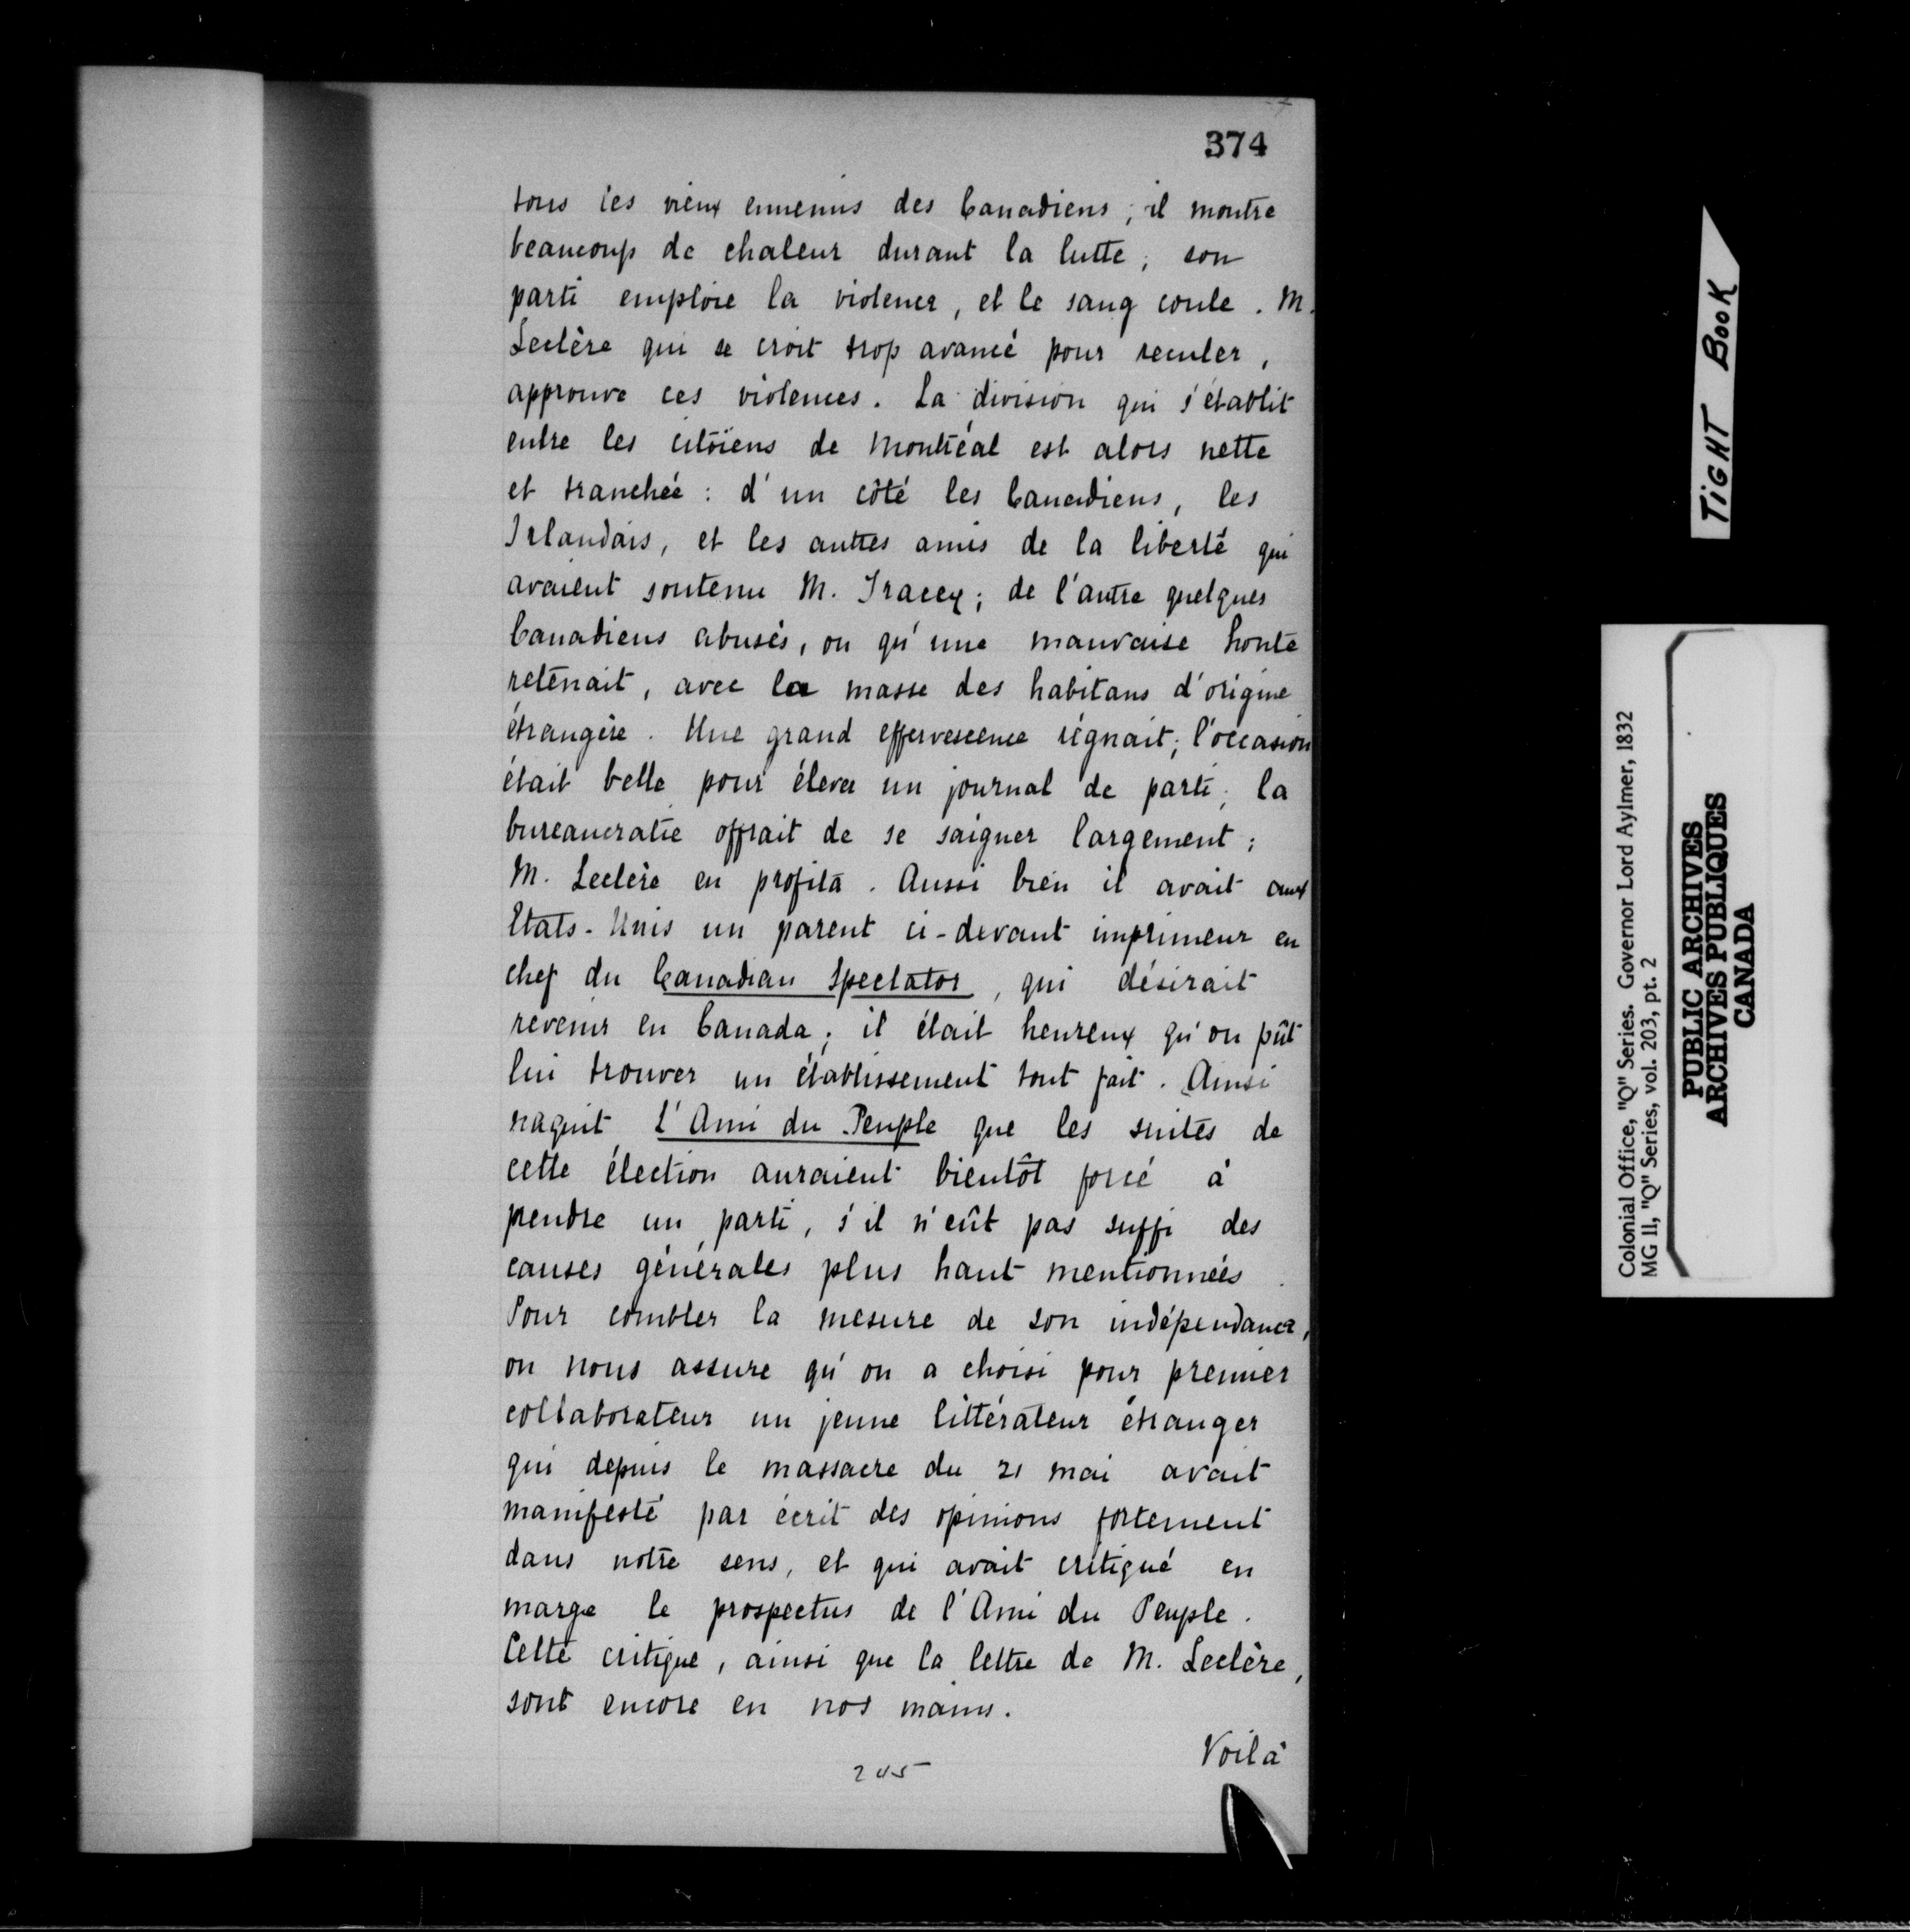 374
tous les vieux ennemis des Canadiens ; il montre
beaucoup de chaleur durant la lutte ; son
parti emploie la violence, et le sang coule. M.
Leclère qui se croit trop avancé pour reculer,
approuve ces violences. La division qui s'établit
entre les citoïens de Montréal est alors nette
et tranchée : d'un côté les Canadiens, les
Irlandais, et les autres amis de la liberté qui
avaient soutenu M. Tracey ; de l'autre quelques
Canadiens abusés, ou qu'une mauvaise honte
retenait, avec la masse des habitans d'origine
étrangère. Une grand effervescence régnait ; l'occasion
était belle pour élever un journal de parti ; la
bureaucratie offrait de se saigner largement ;
M. Leclère en profita. Aussi bien il avait aux
Etats-Unis un parent ci-devant imprimeur en
chef du Canadian Spectator, qui désirait
revenir en Canada ; il était heureux qu'on pût
lui trouver un établissement tout fait. Ainsi
naquit L'Ami du Peuple que les suites de
cette élection auraient bientôt forcé à
prendre un parti, s'il n'eût pas suffi des
causes générales plus haut mentionnées.
Pour combler la mesure de son indépendance,
on nous assure qu'on a choisi pour premier
collaborateur un jeune littérateur étranger
qui depuis le massacre du 21 mai avait
manifesté par écrit des opinions fortement
dans notre sens, et qui avait critiqué en
marge le prospectus de l'Ami du Peuple.
Cette critique, ainsi que la lettre de M. Leclère,
sont encore en nos mains.
Voilà
245
TIGHT BOOK
Colonial Office, "Q" Series. Governor Lord Aylmer, 1832
MG 11, "Q" Series, vol. 203, pt. 2
PUBLIC ARCHIVES
ARCHIVES PUBLIQUES
CANADA